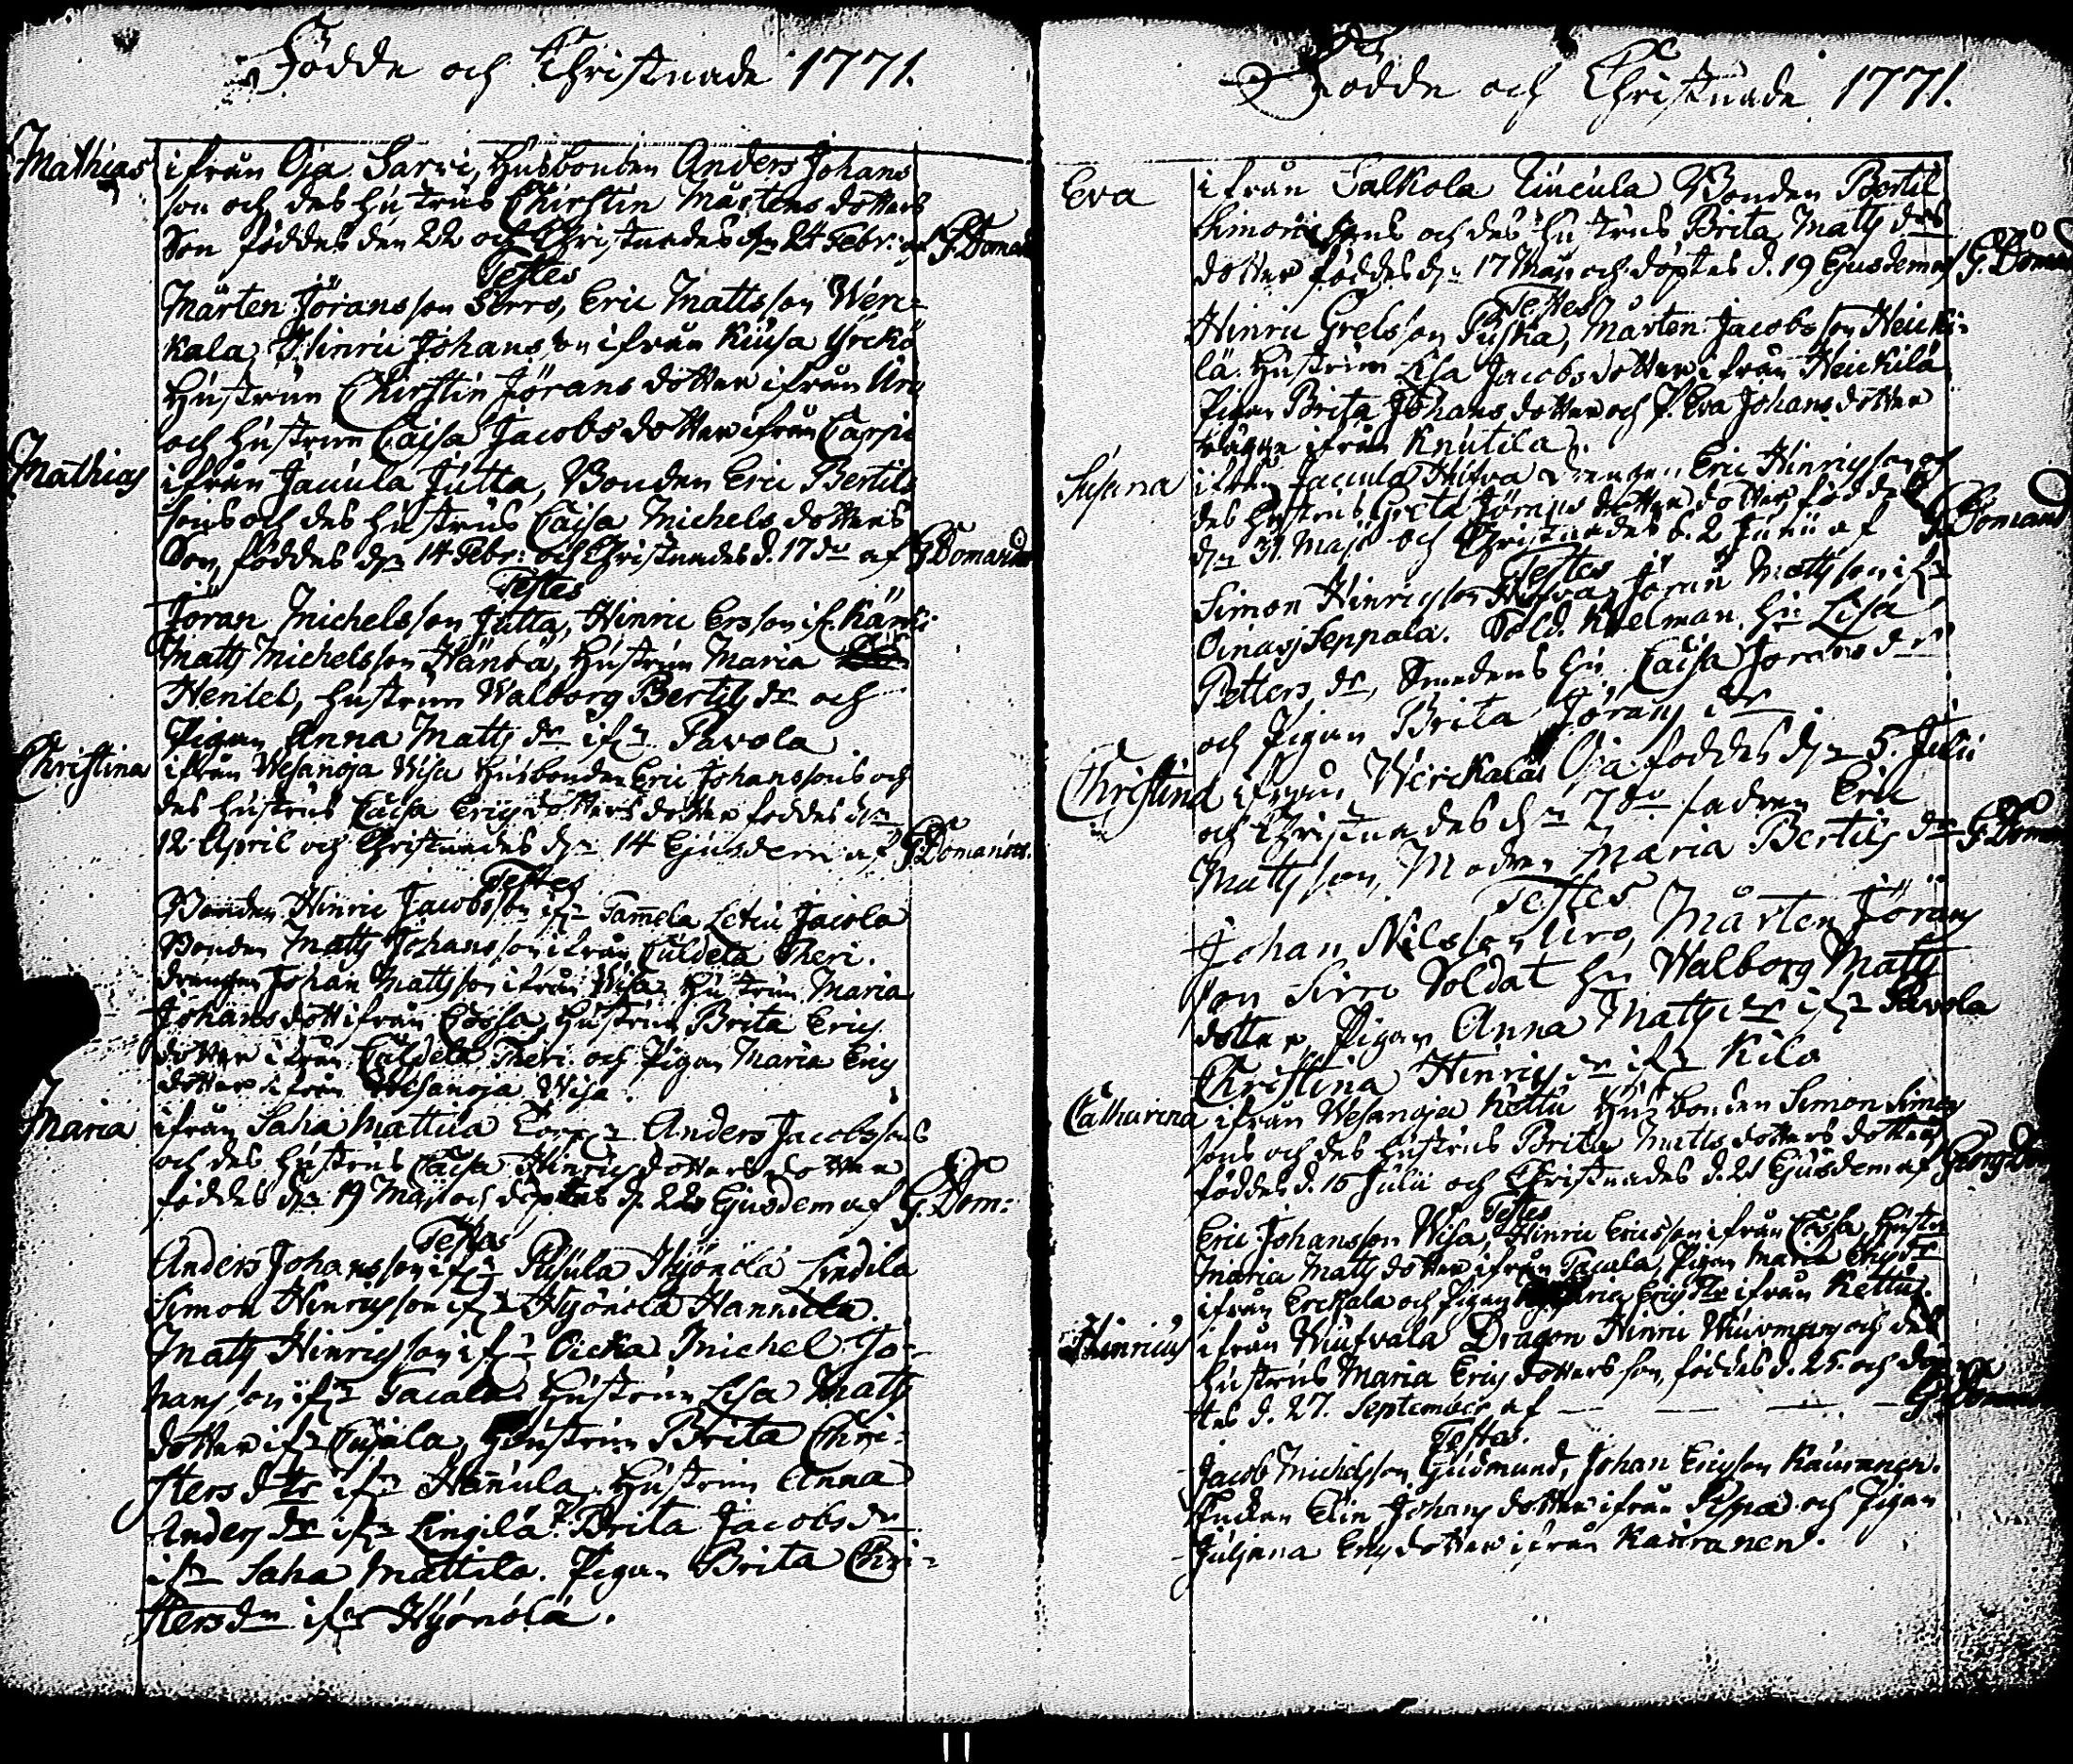 Födde och Christnade 1771.
Mathias ifrån Oja Sarvi, Husbonden Anders Johans
son och des hustrus Chirstin Mårtens dotters
Son föddes den 22 och Christnades dn 24 Febr: af G. Doman
Testes
Mårten Jöransson Sirro, Eric Mattsson Weri-
kala, Hinric Johansson ifrån Kiusa Yrckö
Hustrun Chirstin Jörans dotter ifrån Uro
och hustrun Caisa Jacobs dotter ifrån Carpi
Mathias ifrån Jacula Jutta, Bonden Eric Bertils
sons och des hustrus Caisa Michels dotters
Son, föddes dn 14 Febr: och Christnades d. 17 do af G Domander
Testes
Jöran Michelsson Jutta, Hinric Ersson if. Kärki
Matts Michelsson Hänkä, hustrun Maria
Hentel, hustrun Walborg Bertils dr och
Pigan Anna Matts dr ifn Pavola
Christina ifrån Wesanoja Wisa Husbonden Eric Johanssons och
des hustrus Caisa Erics dotters dotter föddes dn
12 April och Christnades dn 14 Ejusdem af G Domander.
Testes
Bonden Hinric Jacobsson ifn Tammela Letku Jacola
Bonden Matts Johansson ifrån Culdela Theri.
drengen Johan Mattsson ifrån Wisa Hustrun Maria
Johans dott ifrån Hustrun Brita Erics
dotter ifrån Culdela Theri och Pigan Maria Erics
dotter ifrån Wesanoja Wisa.
Maria ifrån Saha Mattila Torpn Anders Jacobssons
och des hustrus Caisa Hinrics dotters dotter
föddes dn 19 Maji och döptes d. 22 Ejusdem af G. Dom:
Testes
Anders Johansson ifn Pusula Hyönölä Lindila
Simon Hinricsson ifn Hyönölä Hannula.
Matts Hinricsson ifn Michel Jo-
hansson ifn Tacala Hustrun Lisa Matts
dotter ifn Cujala, Hustrun Brita Chri-
sters dtr ifn Hannula, Hustrun Anna
Anders dr ifn Lingilä P. Brita Jacobs dr
ifn Saha Mattila. Pigan Brita Chri-
sters dr ifn Hyönölä.
Födde och Christnade 1771.
Eva ifrån Salkola Bonden Bertil
Simonssons och des hustrus Brita Matts drs
dotter föddes dn 17 Maji och döptes d. 19 Ejusdem af G. Doman
Testes
Hinric Grelsson Puska, Mårten Jacobsson Heicki-
lä. Hustrun Lisa Jacobs dotter ifrån Heickilä
Pigan Brita Johans dotter och P. Eva Johans dotter
bägge ifrån Knutila.
Susana ifrån Jacula drengen Eric Hinricsson och
des hustrus Greta Jörans dotter, dotter, föddes
dn 31. Maji och Christnades d. 2 Junii af G Domand
Testes
Simon Hinricsson Jöran Mattsson ifn
Oinasj Seppälä. Sold. hu Lisa
Petters dr, Smedens hu. Caisa Jörans dr
och Pigan Brita Jörans dr
Christina ifrån Werckala Oja föddes dn 5. Julii
och Christnades dn 7 do fadren Eric
Mattsson, Modren Maria Bertils dr G. Doman
Testes
Johan Nilsson Uro, Mårten Jörans
son Sirro Soldat hu Walborg Matts
dotter, Pigan Anna Matts dr ifn Pavola
Christina Hinrics dr ifn Kila
Catharina ifrån Wesanoja Kettu Husbonden Simon Simons
sons och des hustrus Brita Matts dotters dotter
föddes d. 16 Julii och Christnades d. 21 Ejusdem af Georg Dom
Testes
Eric Johansson Wisa, Hinric Ericsson ifrån Hustr
Maria Matts dotter ifrån Tacala, Pigan Maria Erics dr
ifrån Erckala och Pigan Maria Erics dtr ifrån Kettu.
Hinricus ifrån Dragon Hinric och des
hustrus Maria Erics dotters son, föddes d. 25. och döp
tes d. 27. September af G. Doman
Testes.
Jacob Michelsson Gudmund, Johan Ericsson Kauranen.
Encken Elin Johans dotter ifrån och Pigan
Juljana Erics dotter ifrån Kauranen.
11